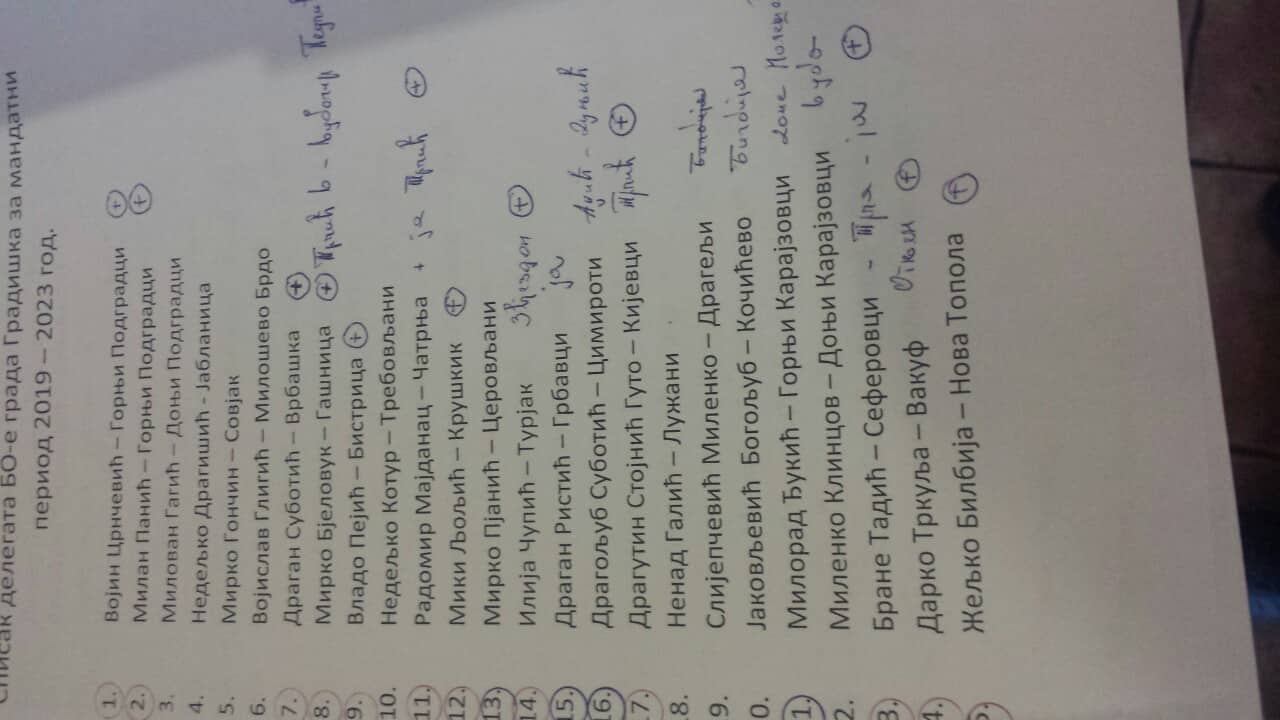 Списак делегата БО-е града Градишка за мандатни
период 2019 – 2023 год.
1. Војин Црнчевић – Горњи Подградци +
2. Милан Панић – Горњи Подградци +
3. Милован Гагић – Доњи Подградци
4. Недељко Драгишић - Јабланица
5. Мирко Гончин – Совјак
6. Војислав Глигић – Милошево Брдо
7. Драган Суботић – Врбашка +
8. Мирко Бјеловук – Гашница +
9. Владо Пејић – Бистрица +
10. Недељко Котур – Требовљани
11. Радомир Мајданац – Чатрња + ја Трпић +
12. Мики Љољић – Крушкик +
13. Мирко Пјанић – Церовљани
14. Илија Чупић – Турјак +
15. Драган Ристић – Грбавци ја
16. Драгољуб Суботић – Цимироти
7. Драгутин Стојнић Гуто – Кијевци Трпић +
8. Ненад Галић – Лужани
9. Слијепчевић Миленко – Драгељи
0. Јаковљевић Богољуб – Кочићево
1. Милорад Ђукић – Горњи Карајзовци
2. Миленко Клинцов – Доњи Карајзовци
3. Бране Тадић – Сеферовци - Трпа - ја +
4. Дарко Тркуља – Вакуф +
5. Жељко Билбија – Нова Топола +